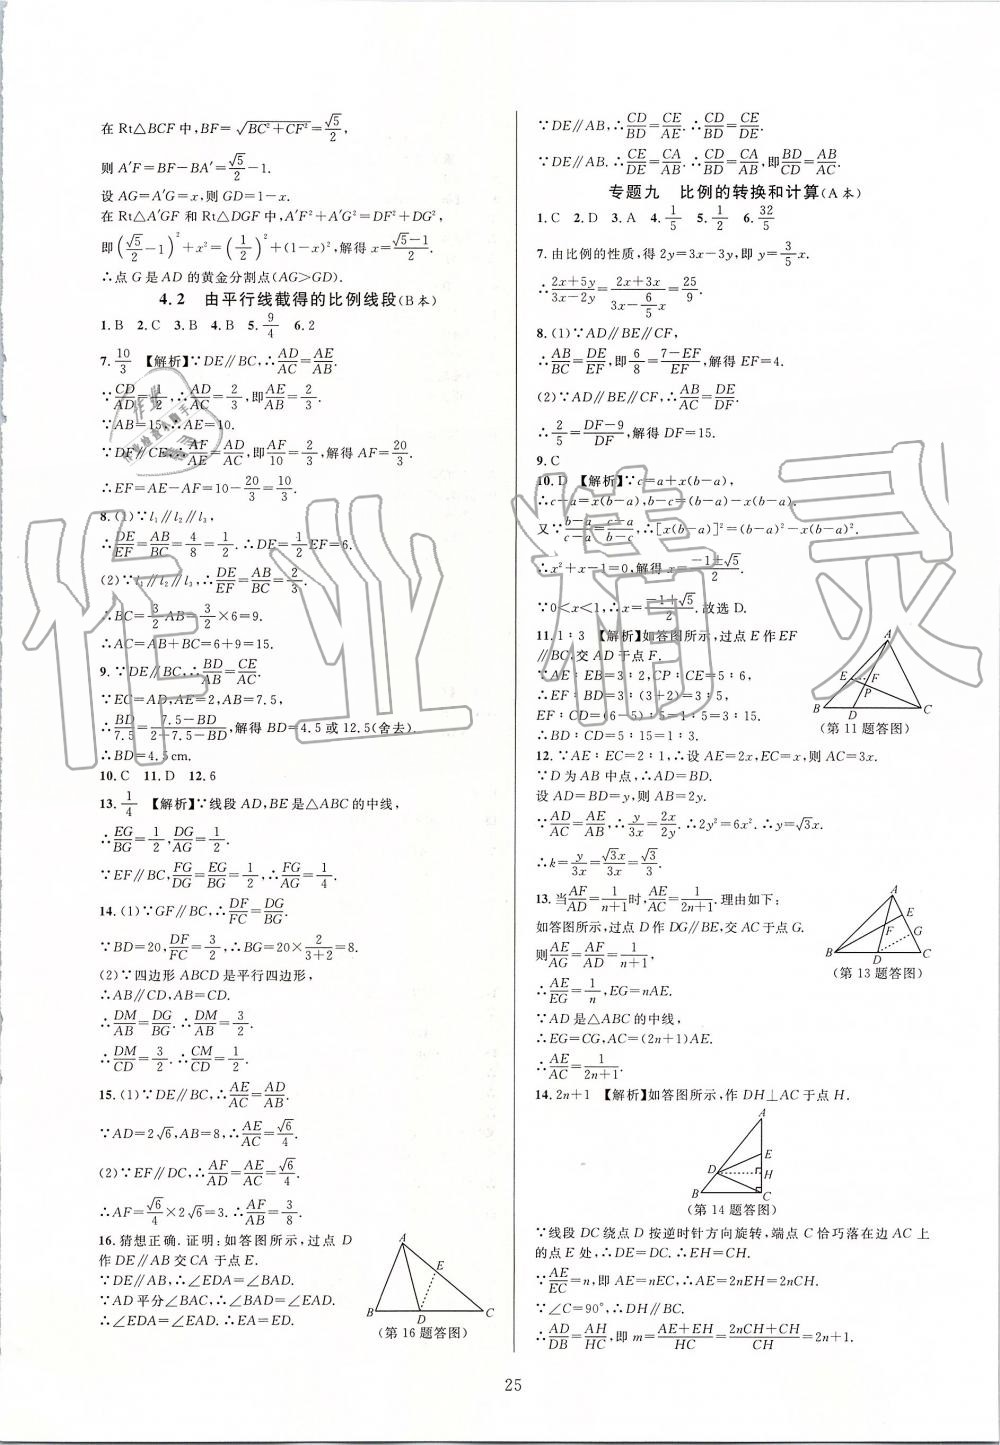 在 Rt△BCF 中,BF=√(BC²+CF²)=√5/2,
则 A′F=BF-BA′=√5/2-1.
设 AG=A′G=x,则 GD=1-x.
在 Rt△A′GF 和 Rt△DGF 中,A′F²+A′G²=DF²+DG²,
即(√5/2-1)²+x²=(1/2)²+(1-x)²,解得 x=(√5-1)/2.
∴点 G 是 AD 的黄金分割点(AG>GD).
4.2 由平行线截得的比例线段(B本)
1.B 2.C 3.B 4.B 5.9/4 6.2
7.10/3 【解析】∵DE∥BC,∴AD/AC=AE/AB.
∵CD/AD=1/2,∴AD/AC=2/3,即AE/AB=2/3.
∵AB=15,∴AE=10.
∵DF∥CE,∴AF/AE=AD/AC,即AF/10=2/3,解得 AF=20/3.
∴EF=AE-AF=10-20/3=10/3.
8.(1)∵l₁∥l₂∥l₃,
∴DE/EF=AB/BC=4/8=1/2.∴DE=1/2EF=6.
(2)∵l₁∥l₂∥l₃,∴DE/EF=AB/BC=2/3.
∴BC=3/2 AB=3/2×6=9.
∴AC=AB+BC=6+9=15.
9.∵DE∥BC,∴BD/AB=CE/AC.
∵EC=AD,AE=2,AB=7.5,
∴BD/7.5=(7.5-BD)/(2+7.5-BD),解得 BD=4.5或12.5(舍去).
∴BD=4.5cm.
10.C 11.D 12.6
13.1/4 【解析】∵线段 AD,BE 是△ABC 的中线,
∴EG/BG=1/2,DG/AG=1/2.
∵EF∥BC,FG/DG=EG/BG=1/2,∴FG/AG=1/4.
14.(1)∵GF∥BC,∴DF/FC=DG/BG.
∵BD=20,DF/FC=3/2,∴BG=20×2/(3+2)=8.
(2)∵四边形 ABCD 是平行四边形,
∴AB∥CD,AB=CD.
∴DM/AB=DG/BG.∴DM/AB=3/2.
∴DM/CD=3/2.∴CM/CD=1/2.
15.(1)∵DE∥BC,∴AE/AC=AD/AB.
∵AD=2√6,AB=8,∴AE/AC=√6/4.
(2)∵EF∥DC,∴AF/AD=AE/AC=√6/4.
∴AF=√6/4×2√6=3.∴AF/AB=3/8.
16.猜想正确.证明:如答图所示,过点 D
作 DE∥AB 交 CA 于点 E.
∵DE∥AB,∴∠EDA=∠BAD.
∵AD 平分∠BAC,∴∠BAD=∠EAD.
∴∠EDA=∠EAD.∴EA=ED.
A
E
B D C
(第16题答图)
∵DE∥AB,∴CD/BD=CE/AE.∴CD/BD=CE/DE.
∵DE∥AB.∴CE/DE=CA/AB.∴CD/BD=CA/AB,即BD/CD=AB/AC.
专题九 比例的转换和计算(A本)
1.C 2.D 3.A 4.1/5 5.1/2 6.32/5
7.由比例的性质,得 2y=3x-3y,即 y=3/5 x.
∴(2x+5y)/(3x-2y)=(2x+3x)/(3x-6/5 x)=25/9.
8.(1)∵AD∥BE∥CF,
∴AB/BC=DE/EF,即6/8=(7-EF)/EF,解得 EF=4.
(2)∵AD∥BE∥CF,∴AB/AC=DE/DF.
∴2/5=(DF-9)/DF,解得 DF=15.
9.C
10.D 【解析】∵c=a+x(b-a),
∴c-a=x(b-a),b-c=(b-a)-x(b-a).
又∵(b-a)/(c-a)=(c-a)/(b-c),∴[x(b-a)]²=(b-a)²-x(b-a)².
∴x²+x-1=0,解得 x=(-1±√5)/2.
∵0<x<1,∴x=(-1+√5)/2.故选 D.
11.1∶3 【解析】如答图所示,过点 E 作 EF
∥BC,交 AD 于点 F.
∵AE∶EB=3∶2,CP∶CE=5∶6,
∴EF∶BD=3∶(3+2)=3∶5,
EF∶CD=(6-5)∶5=1∶5=3∶15.
∴BD∶CD=5∶15=1∶3.
A
E F
P
B D C
(第11题答图)
12.∵AE∶EC=2∶1,∴设 AE=2x,EC=x,则 AC=3x.
∵D 为 AB 中点,∴AD=BD.
设 AD=BD=y,则 AB=2y.
∵AD/AC=AE/AB,∴y/3x=2x/2y.∴2y²=6x².∴y=√3x.
∴k=y/3x=√3x/3x=√3/3.
13.当AF/AD=1/(n+1)时,AE/AC=1/(2n+1).理由如下:
如答图所示,过点 D 作 DG∥BE,交 AC 于点 G.
则AE/AG=AF/AD=1/(n+1),
∴AE/EG=1/n,EG=nAE.
∵AD 是△ABC 的中线,
∴EG=CG,AC=(2n+1)AE.
∴AE/AC=1/(2n+1).
A
E
F G
B D C
(第13题答图)
14.2n+1 【解析】如答图所示,作 DH⊥AC 于点 H.
A
E
D H
B C
(第14题答图)
∵线段 DC 绕点 D 按逆时针方向旋转,端点 C 恰巧落在边 AC 上
的点 E 处,∴DE=DC.∴EH=CH.
∵AE/EC=n,即 AE=nEC,∴AE=2nEH=2nCH.
∵∠C=90°,∴DH∥BC.
∴AD/DB=AH/HC,即 m=(AE+EH)/HC=(2nCH+CH)/CH=2n+1.
25
作业精灵